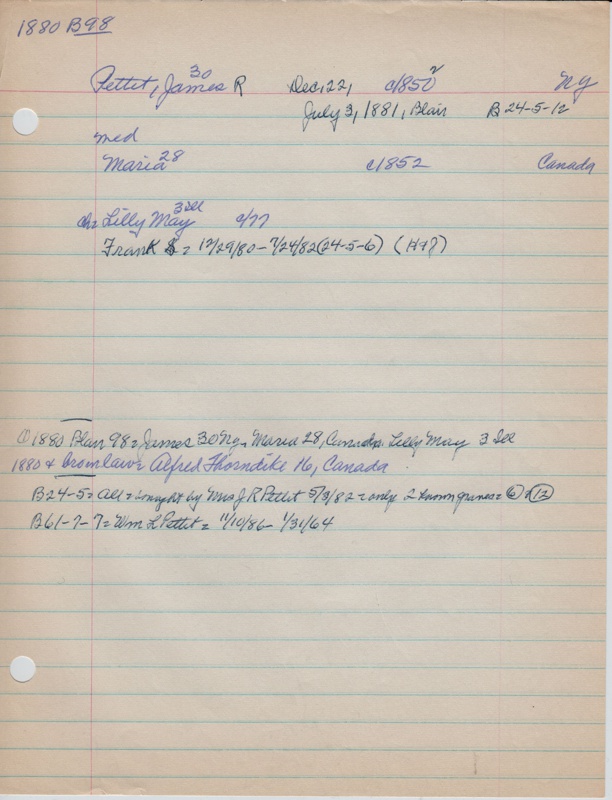 1880 B98
30
Pettit, James R Dec, 22, c/1850 2 NY
July 3, 1881, Blair B 24-5-12
med
Maria 28 c/1852 Canada
ch= Lilly May 3 Ill c/77
Frank S= 12/29/80 - 7/24/82 (24-5-6) (H78)
① 1880 Blair 98= James 30 NY, Maria 28, Canada. Lilly May 3 Ill
1880 & bromlaw= Alfred Thorndike 16, Canada.
B24-5= All= bought by Mrs J R Pettit 5/3/82= only 2 known graves= ⑥ & ⑫
B61-7-7= Wm L Pettit= 11/10/86 - 1/31/64